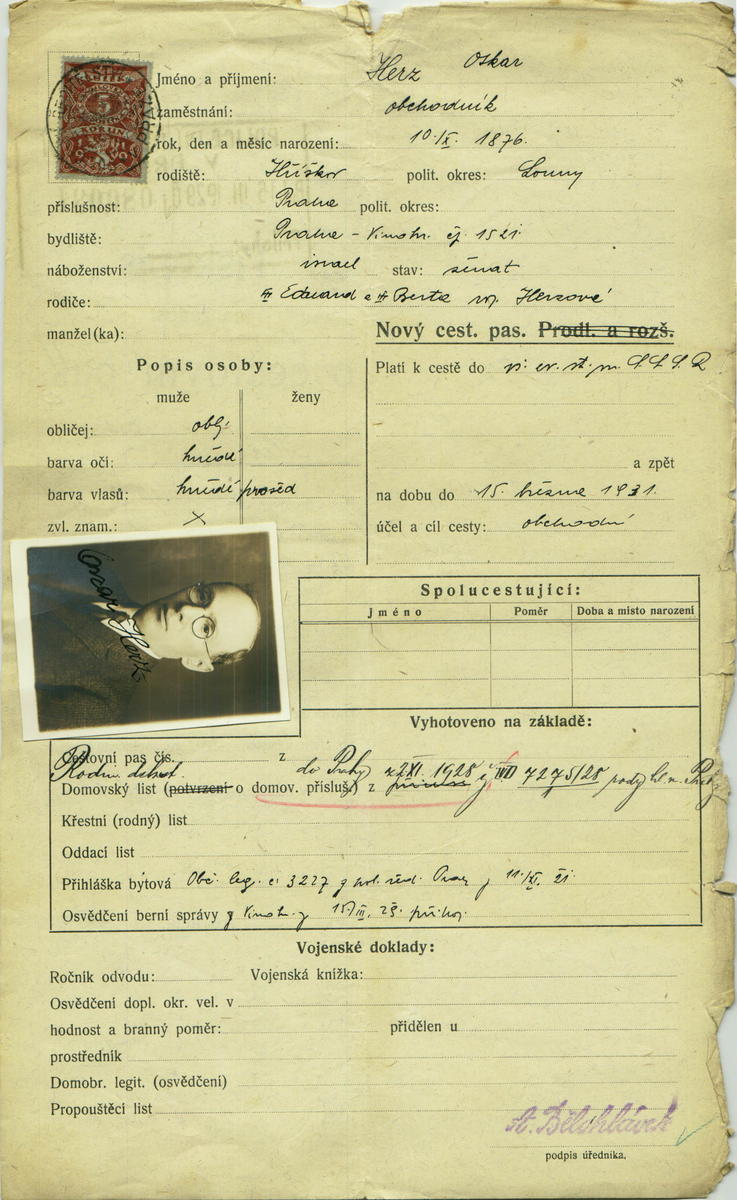 5
KORUN
PRAHA
Jméno a příjmení: Herz Oskar
zaměstnání: obchodník
rok, den a měsíc narození: 10./X. 1876.
rodiště: polit. okres: Louny
příslušnost: Praha polit. okres:
bydliště: Praha - Vinohr. čj. 1521.
náboženství: israel stav: ženat
rodiče: Eduard a Berta Herzové
manžel(ka):
Nový cest. pas. Prodl. a rozš.
Popis osoby:
Platí k cestě do
muže ženy
obličej: obl.
barva očí: hnědé
a zpět
barva vlasů: hnědé prošed
na dobu do 15. března 1931.
zvl. znam.: X
účel a cíl cesty: obchodní
Oscar Herz
Spolucestující:
Jméno Poměr Doba a místo narození
Vyhotoveno na základě:
Cestovní pas čís. z
do Prahy z 2/XI. 1928 č. 7275/28
Domovský list (potvrzení o domov. přísluš.) z
Křestní (rodný) list
Oddací list
Přihláška bytová Obč. leg. č. 3227 z pol. řed. z 11./XI. 21.
Osvědčení berní správy z Vinohr. z 15/III. 29.
Vojenské doklady:
Ročník odvodu: Vojenská knížka:
Osvědčení dopl. okr. vel. v
hodnost a branný poměr: přidělen u
prostředník
Domobr. legit. (osvědčení)
Propouštěcí list
A. Bělohlávek
podpis úředníka.